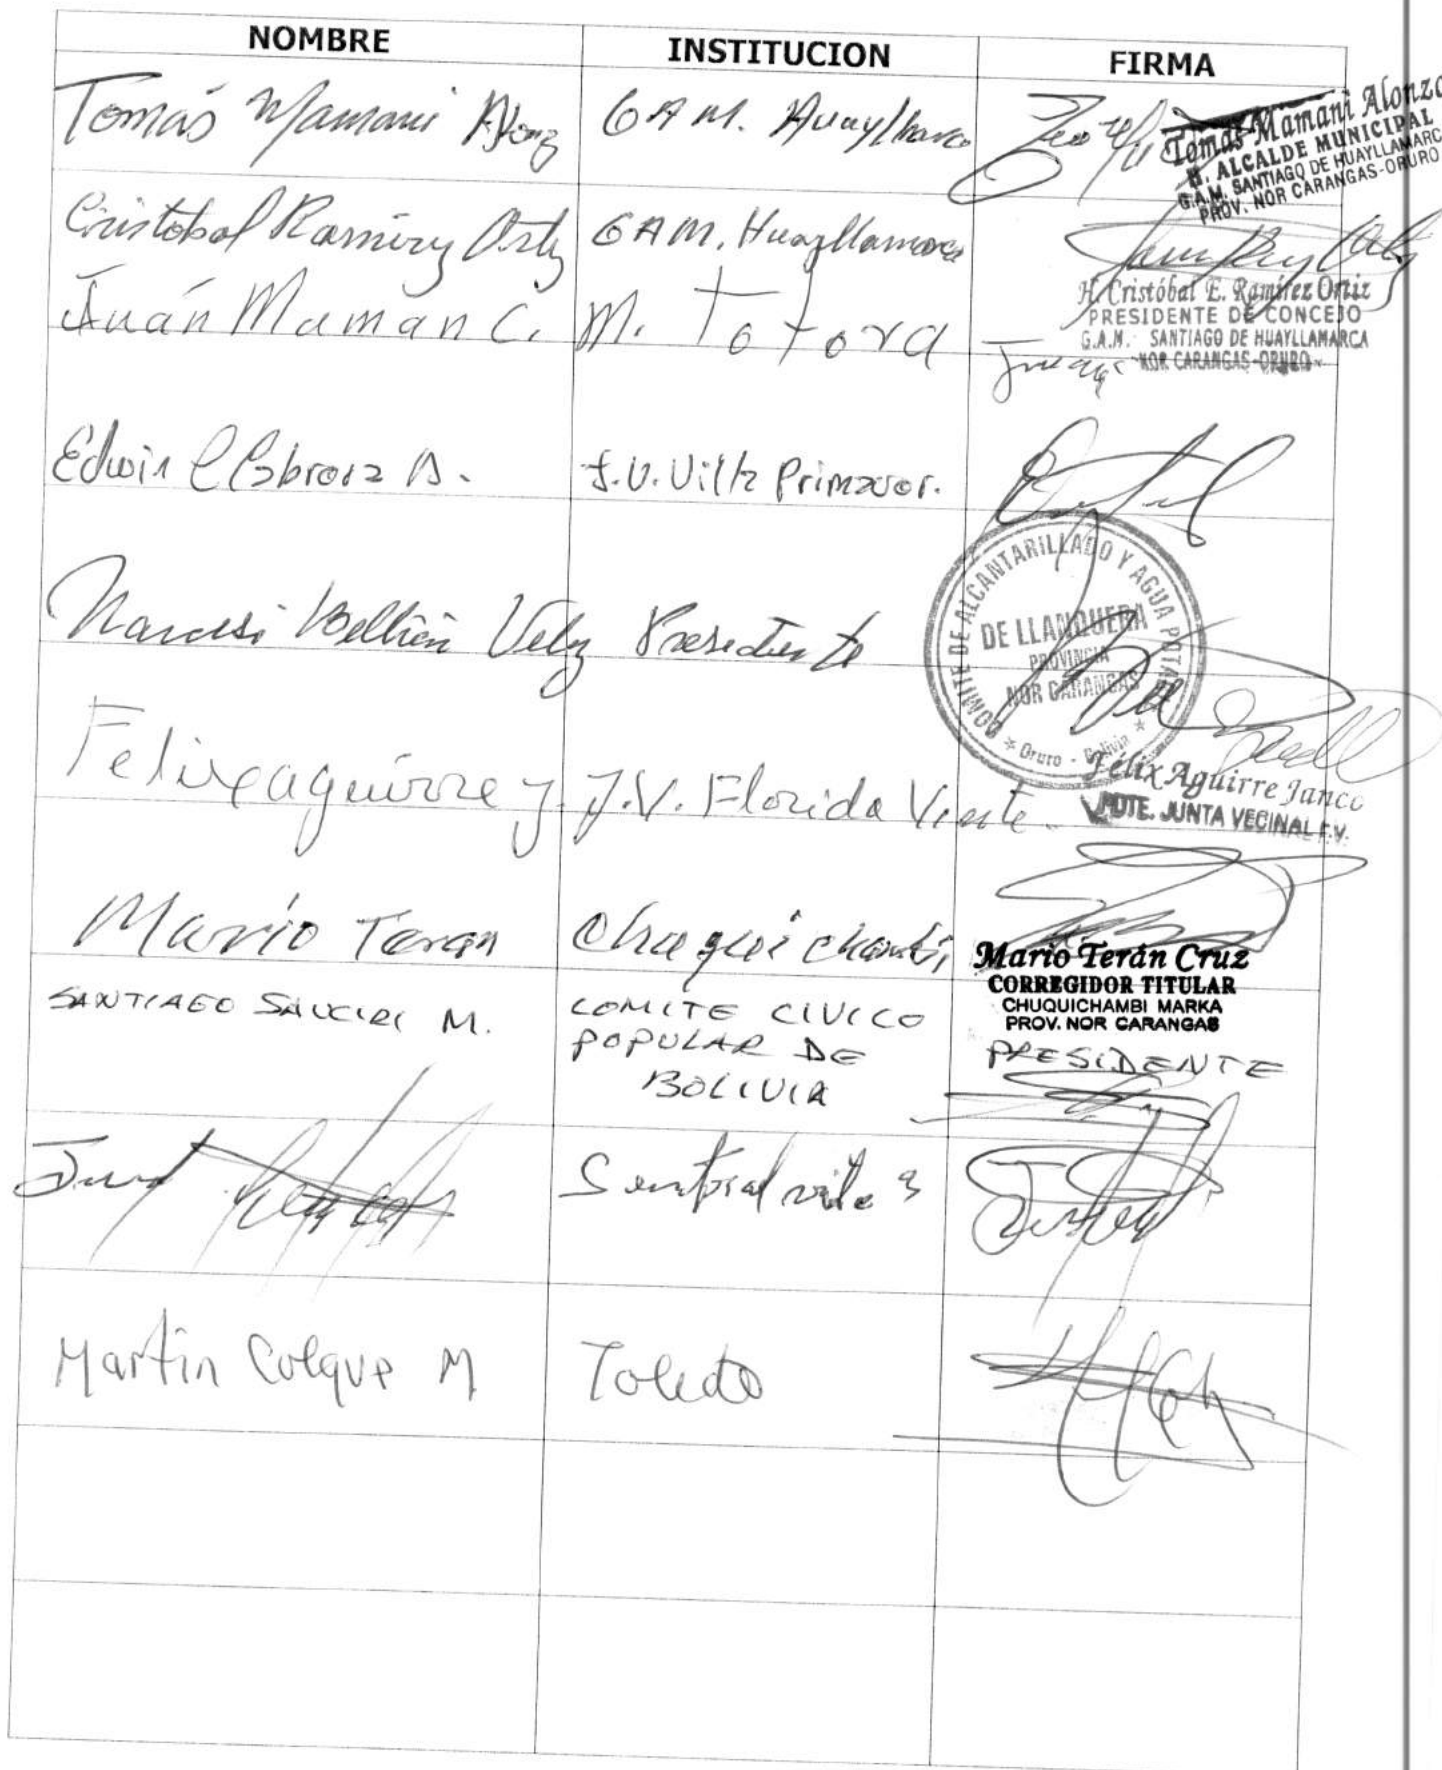 NOMBRE INSTITUCION FIRMA
Tomás Mamani Alonz G A M. Huayllmarca
Tomás Mamani Alonzo
H. ALCALDE MUNICIPAL
G.A.M. SANTIAGO DE HUAYLLAMARCA
PROV. NOR CARANGAS-ORURO
Cristobal Ramirez Ortiz GAM. Huayllamarca
H. Cristóbal E. Ramírez Ortiz
PRESIDENTE DE CONCEJO
G.A.M. SANTIAGO DE HUAYLLAMARCA
NOR CARANGAS-ORURO
Juán Maman C. M. Totora
Edwin J.V. Villa Primaver.
COMITE DE ALCANTARILLADO Y AGUA POTABLE
DE LLANQUERA
PROVINCIA
NOR CARANGAS
Oruro - Bolivia
Narcisi Beltrán Veliz Presidente
Felix aguirre J. J.V. Florida Vinte.
Félix Aguirre Janco
PDTE. JUNTA VECINAL F.V.
Mario Teran Chuquichambi
Mario Terán Cruz
CORREGIDOR TITULAR
CHUQUICHAMBI MARKA
PROV. NOR CARANGAS
SANTIAGO SAUCIRI M. COMITE CIVICO
POPULAR DE
BOLIVIA
PRESIDENTE
Martin Colque M Toledo